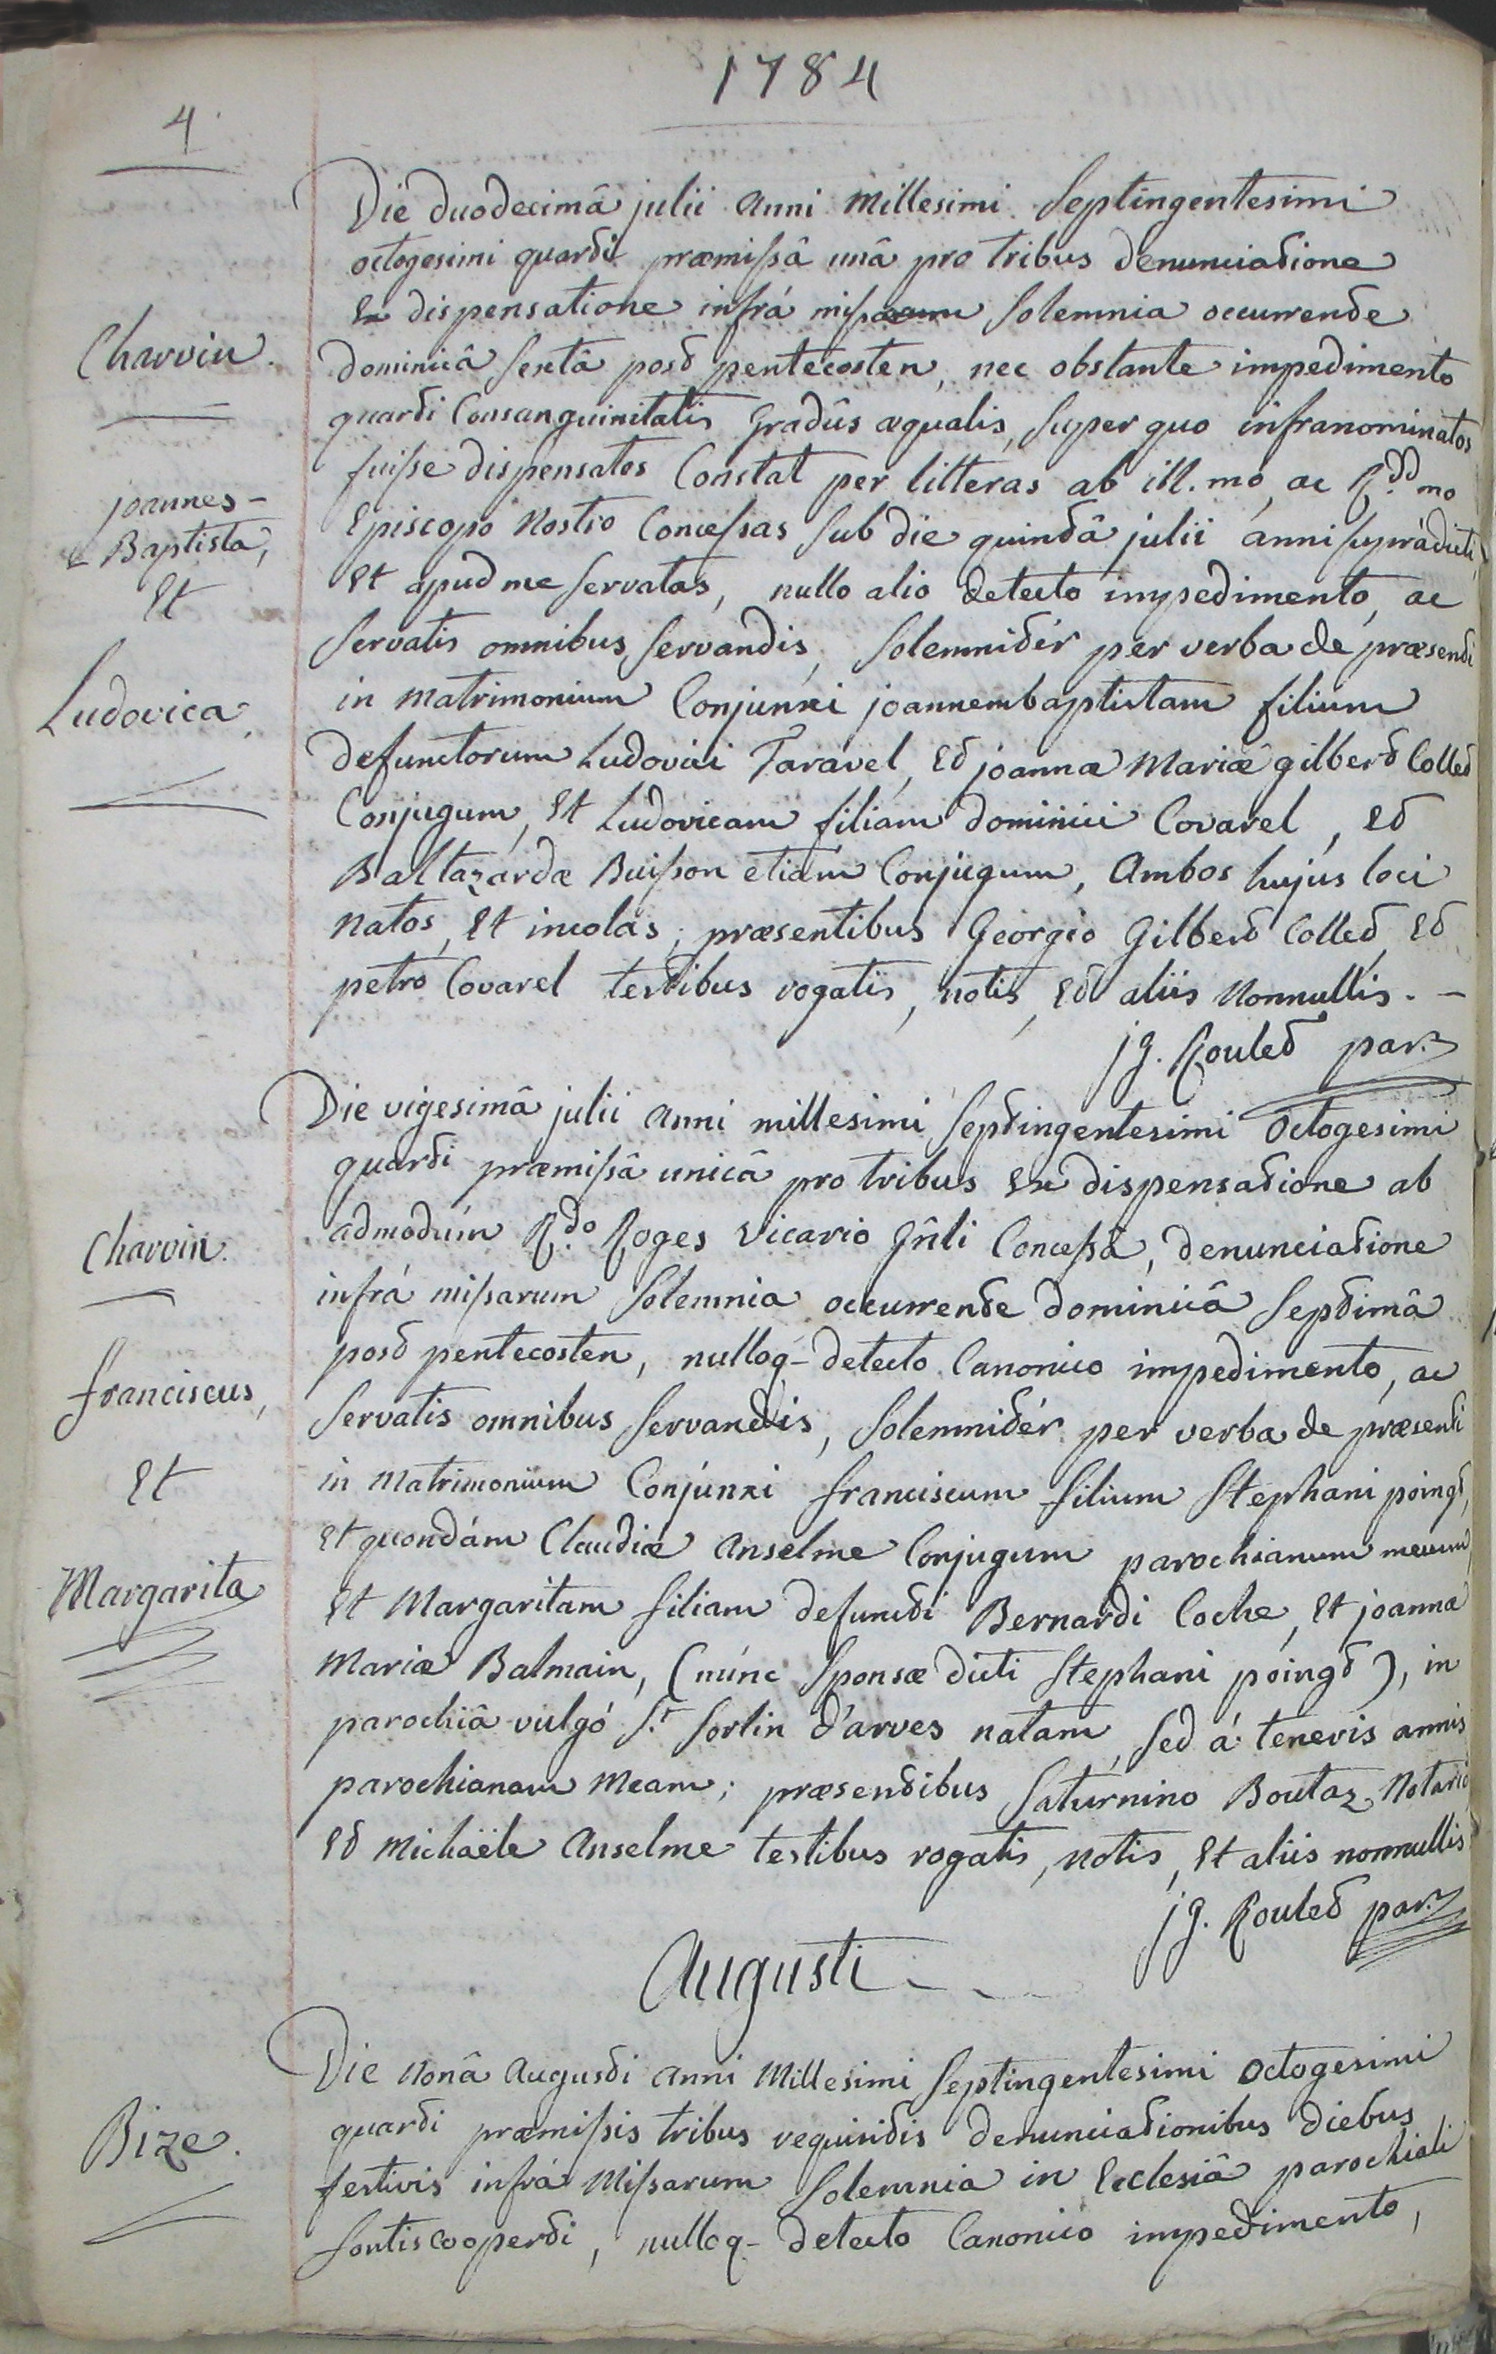 1784
4
Die duodecimâ julii anni millesimi septingentesimi
octogesimi quarti præmissâ unâ pro tribus denunciatione
Ex dispensatione infrá missarum solemnia occurrente
Charvin.
dominicâ sextâ post pentecosten, nec obstante impedimento
quarti Consanguinitatis gradûs æqualis, super quo infranominatos
fuisse dispensatos Constat per litteras ab ill.mo, ac R.dd mo
joannes-
Baptista,
Episcopo Nostro Concessas sub die quintâ julii anni suprádicti,
Et
Et apud me servatas, nullo alio detecto impedimento, ac
servatis omnibus servandis, solemnitér per verba de præsenti
Ludovica,
in matrimonium Conjunxi joannembaptistam filium
defunctorum Ludovici Taravel, Et joannæ Mariæ gilbert Collet
Conjugum, Et Ludovicam filiam dominici Covarel, Et
Baltazardæ Buisson etiám Conjugum, Ambos hujus loci
natos, Et incolas; præsentibus Georgio Gilbert Collet, Et
petro Covarel testibus rogatis, notis, Et aliis Nonnullis. -
jg. Roulet par.
Die vigesimâ julii anni millesimi septingentesimi octogesimi
quarti præmissâ unicâ pro tribus Ex dispensatione ab
Charvin.
admodúm R.do Roges vicario gñli Concessâ, denunciatione
infrá missarum solemnia occurrente dominicâ septimâ
post pentecosten, nulloq- detecto Canonico impedimento, ac
franciscus,
servatis omnibus servandis, solemnitér per verba de præsenti
Et
in matrimonium Conjúnxi franciscum filium Stephani póingt,
Et quondám Claudiæ Anselme Conjugum parochianum meum,
Margarita
Et Margaritam filiam defuncti Bernardi Coche, Et joannæ
Mariæ Balmain, (núnc sponsæ dicti Stephani póingt), in
parochiâ vulgó S.t Sorlin d'arves natam, sed á teneris annis
parochianam Meam; præsentibus Saturnino Boutaz Notario,
Et Michaële Anselme testibus rogatis, notis, Et aliis nonnullis
jg. Roulet par.
Augusti
Die Nonâ Augusti anni Millesimi septingentesimi octogesimi
quarti præmissis tribus requisitis denunciationibus diebus
Bize.
festivis infrá Missarum solemnia in Ecclesiâ parochiali
fontiscooperti, nulloq- detecto Canonico impedimento,